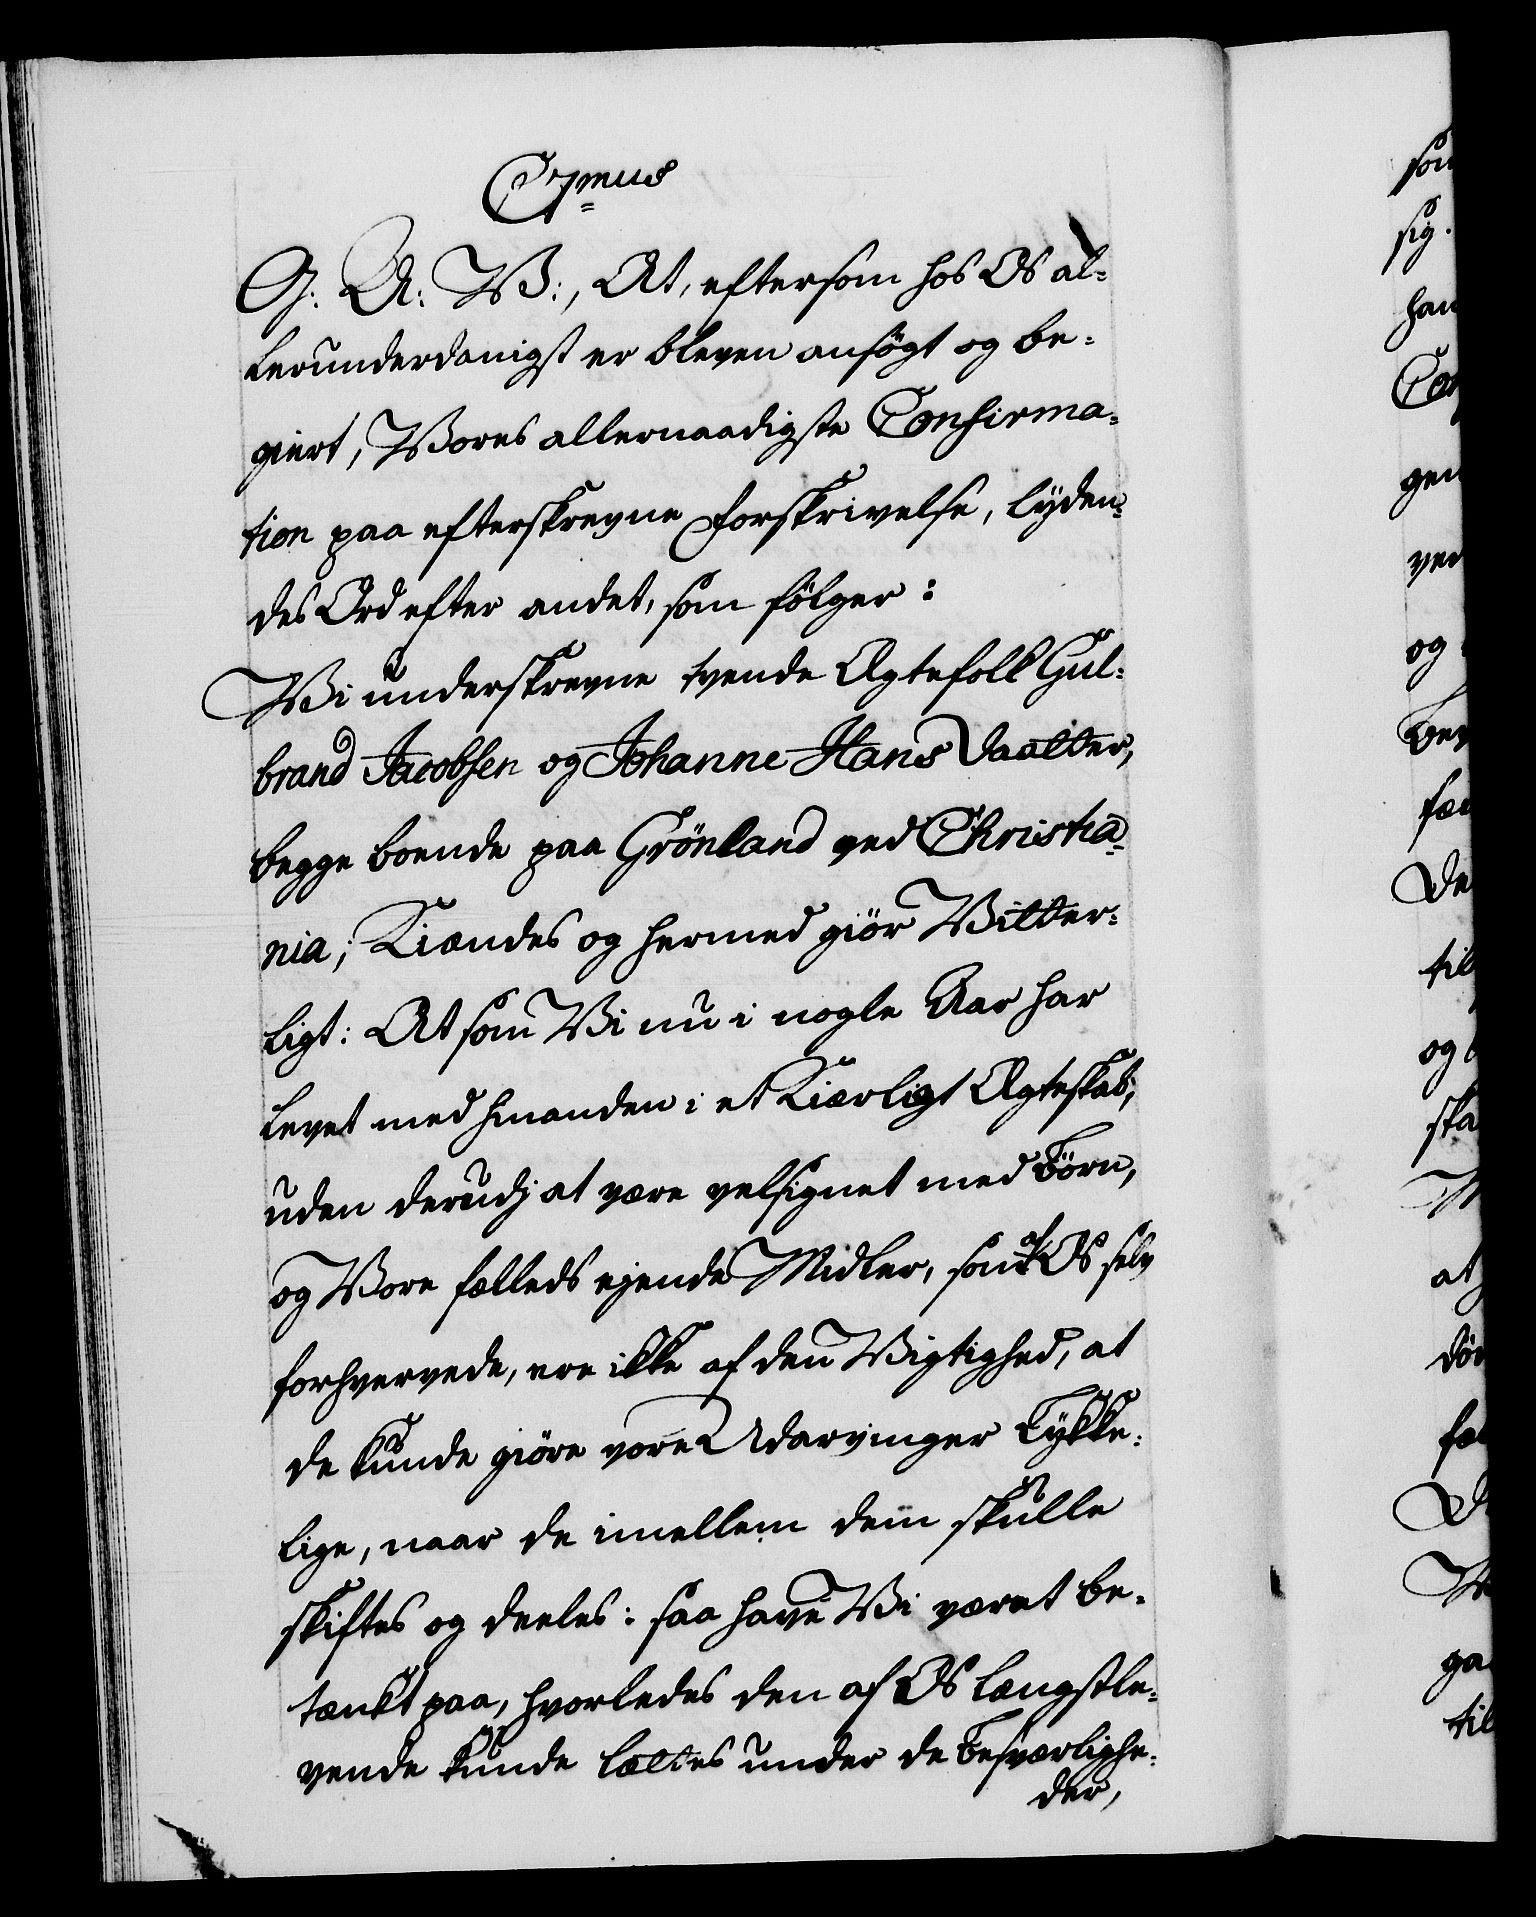 C7mus
G. A: W:, At, eftersom hos Os al-
lerunderdanigst er bleven ansögt og be-
giert, Vores allernaadigste Confirma-
tion paa efterskrevne Forskrivelse, lyden-
des Ord efter andet, som følger:
Vi underskrevne tvende Ægtefolk Gul-
brand Jacobsen og Johanne Hans Daatter,
begge boende paa Grönland ved Christia-
nia; Kiændes og hermed giör Vitter-
ligt: At som Vi nu i nogle Aar har
levet med hinanden i et Kiærligt Ægteskab,
uden derudj at være velsignet med Börn,
og Vore fælleds ejende Midler, som af Os selv
forhvervede, ere ikke af den Vigtighed, at
de kunde giöre vore Udarvinger Lykke-
lige, naar de imellem dem skulle
skiftes og deeles: saa have Vi været be-
tænkt paa, hvorledes den af Os længstle-
vende kunde lættes under de Besværlighe-
der,
som
sig.
han
gen
ved
og
til
og
ska
at
til